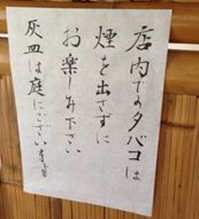 店内でのタバコは
煙を出さずに
お楽しみ下さい
灰皿は庭にございます